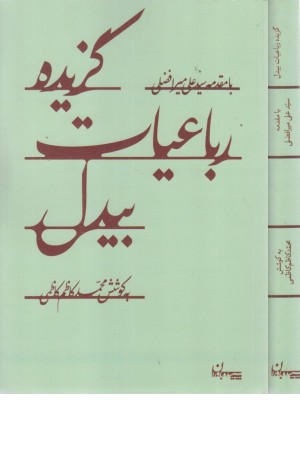 با مقدمه سید علی میرافضلی
گزیده
رباعیات
بیدل
به کوشش محمدکاظم کاظمی
گزیده رباعیات بیدل
با مقدمه
سید علی میرافضلی
به کوشش
محمدکاظم کاظمی